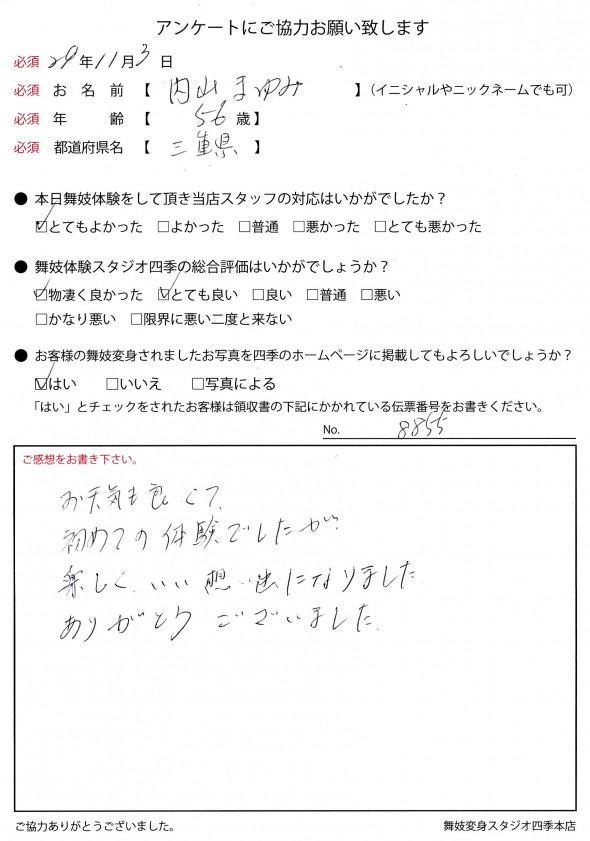 アンケートにご協力お願い致します
必須 29年11月3日
必須 お名前 【 内山まゆみ 】（イニシャルやニックネームでも可）
必須 年齢 【 56歳】
必須 都道府県名 【 三重県 】
● 本日舞妓体験をして頂き当店スタッフの対応はいかがでしたか？
☑とてもよかった □よかった □普通 □悪かった □とても悪かった
● 舞妓体験スタジオ四季の総合評価はいかがでしょうか？
☑物凄く良かった ☑とても良い □良い □普通 □悪い
□かなり悪い □限界に悪い二度と来ない
● お客様の舞妓変身されましたお写真を四季のホームページに掲載してもよろしいでしょうか？
☑はい □いいえ □写真による
「はい」とチェックをされたお客様は領収書の下記にかかれている伝票番号をお書きください。
No. 8855
ご感想をお書き下さい。
お天気も良くて、
初めての体験でしたが、
楽しく、いい想い出になりました
ありがとうございました。
ご協力ありがとうございました。 舞妓変身スタジオ四季本店